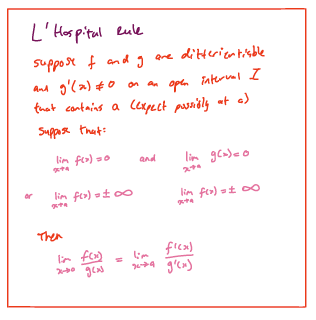 L'Hospital Rule
suppose f and g are differientiable
and g'(x) ≠ 0 on an open interval I
that contains a (expect possibly at a)
suppose that:
lim x→a f(x) = 0 and lim x→a g(x) = 0
or lim x→a f(x) = ± ∞ lim x→a f(x) = ± ∞
Then
lim x→0 f(x)/g(x) = lim x→a f'(x)/g'(x)